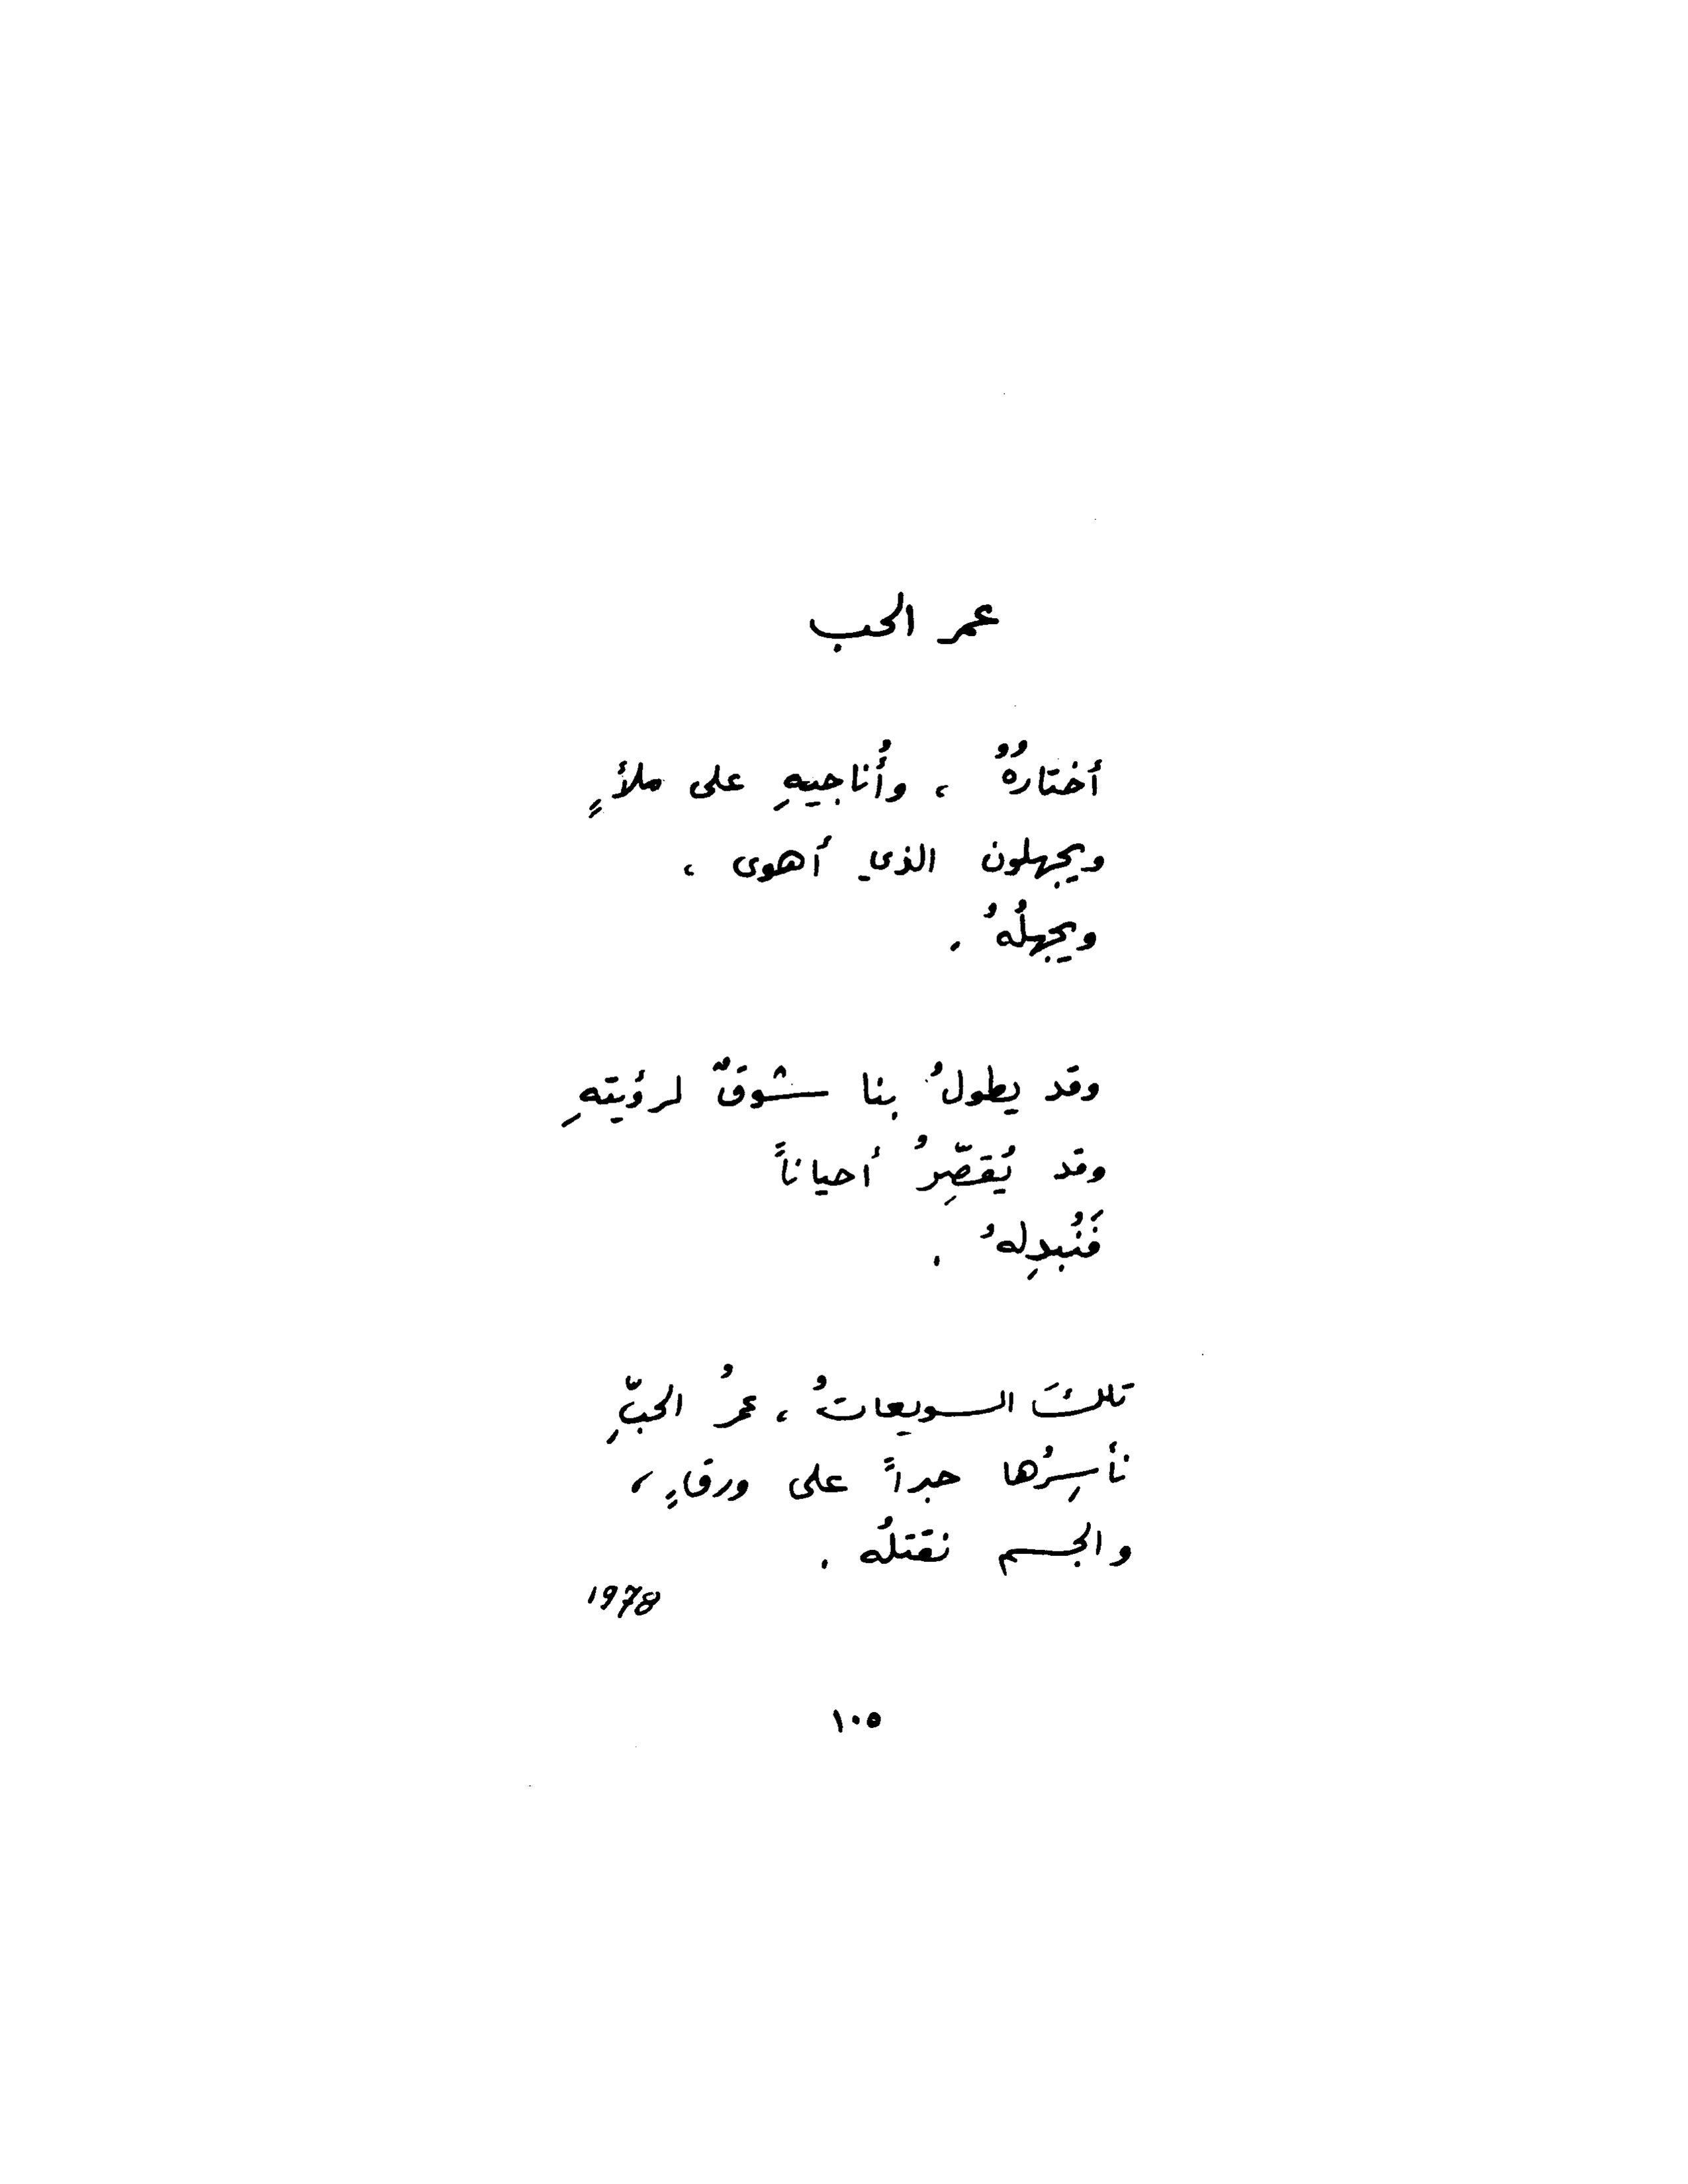 عمر الحب
أختارُهُ ، وأُناجيهِ على ملأٍ
ويجهلون الذي أهوى ،
ويجهلُهُ .
وقد يطولُ بنا شوقٌ لرؤيتهِ
وقد يُقصِّرُ أحياناً
فَنُبدِلهُ .
تلكَ السويعاتُ ، عمرُ الحبِّ
نأسِرُها حبراً على ورقٍ ،
والجسم نقتلُه .
1978
١٠٥